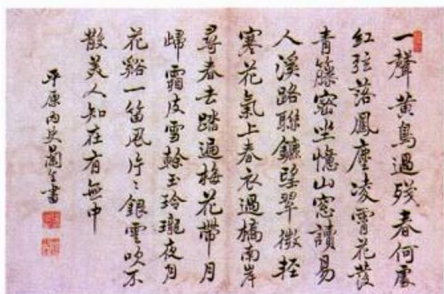 一聲黃鳥過殘春何處
紅弦落鳳塵凌霄花發
青籐密坐憶山窗讀易
人溪路聯鑣墜翠微輕
寒花氣上春衣過橋南岸
尋春去踏遍梅花帶月
歸霜皮雪幹玉玲瓏夜月
花谿一笛風片〻銀雲吹不
散美人知在有無中
平原內史蘭生書